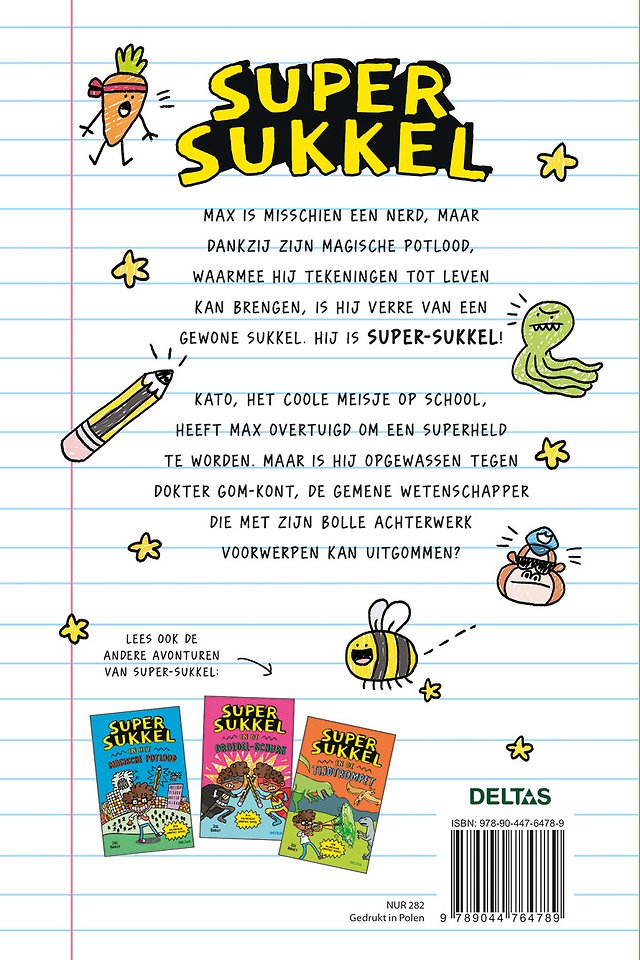 SUPER
SUKKEL
MAX IS MISSCHIEN EEN NERD, MAAR
DANKZIJ ZIJN MAGISCHE POTLOOD,
WAARMEE HIJ TEKENINGEN TOT LEVEN
KAN BRENGEN, IS HIJ VERRE VAN EEN
GEWONE SUKKEL. HIJ IS SUPER-SUKKEL!
KATO, HET COOLE MEISJE OP SCHOOL,
HEEFT MAX OVERTUIGD OM EEN SUPERHELD
TE WORDEN. MAAR IS HIJ OPGEWASSEN TEGEN
DOKTER GOM-KONT, DE GEMENE WETENSCHAPPER
DIE MET ZIJN BOLLE ACHTERWERK
VOORWERPEN KAN UITGOMMEN?
LEES OOK DE
ANDERE AVONTUREN
VAN SUPER-SUKKEL:
SUPER
SUKKEL
EN HET
MAGISCHE POTLOOD
SUPER
SUKKEL
EN DE
DROEDEL-SCHURK
SUPER
SUKKEL
EN DE
TIJDTROMPET
DELTAS
ISBN: 978-90-447-6478-9
9 789044 764789
NUR 282
Gedrukt in Polen